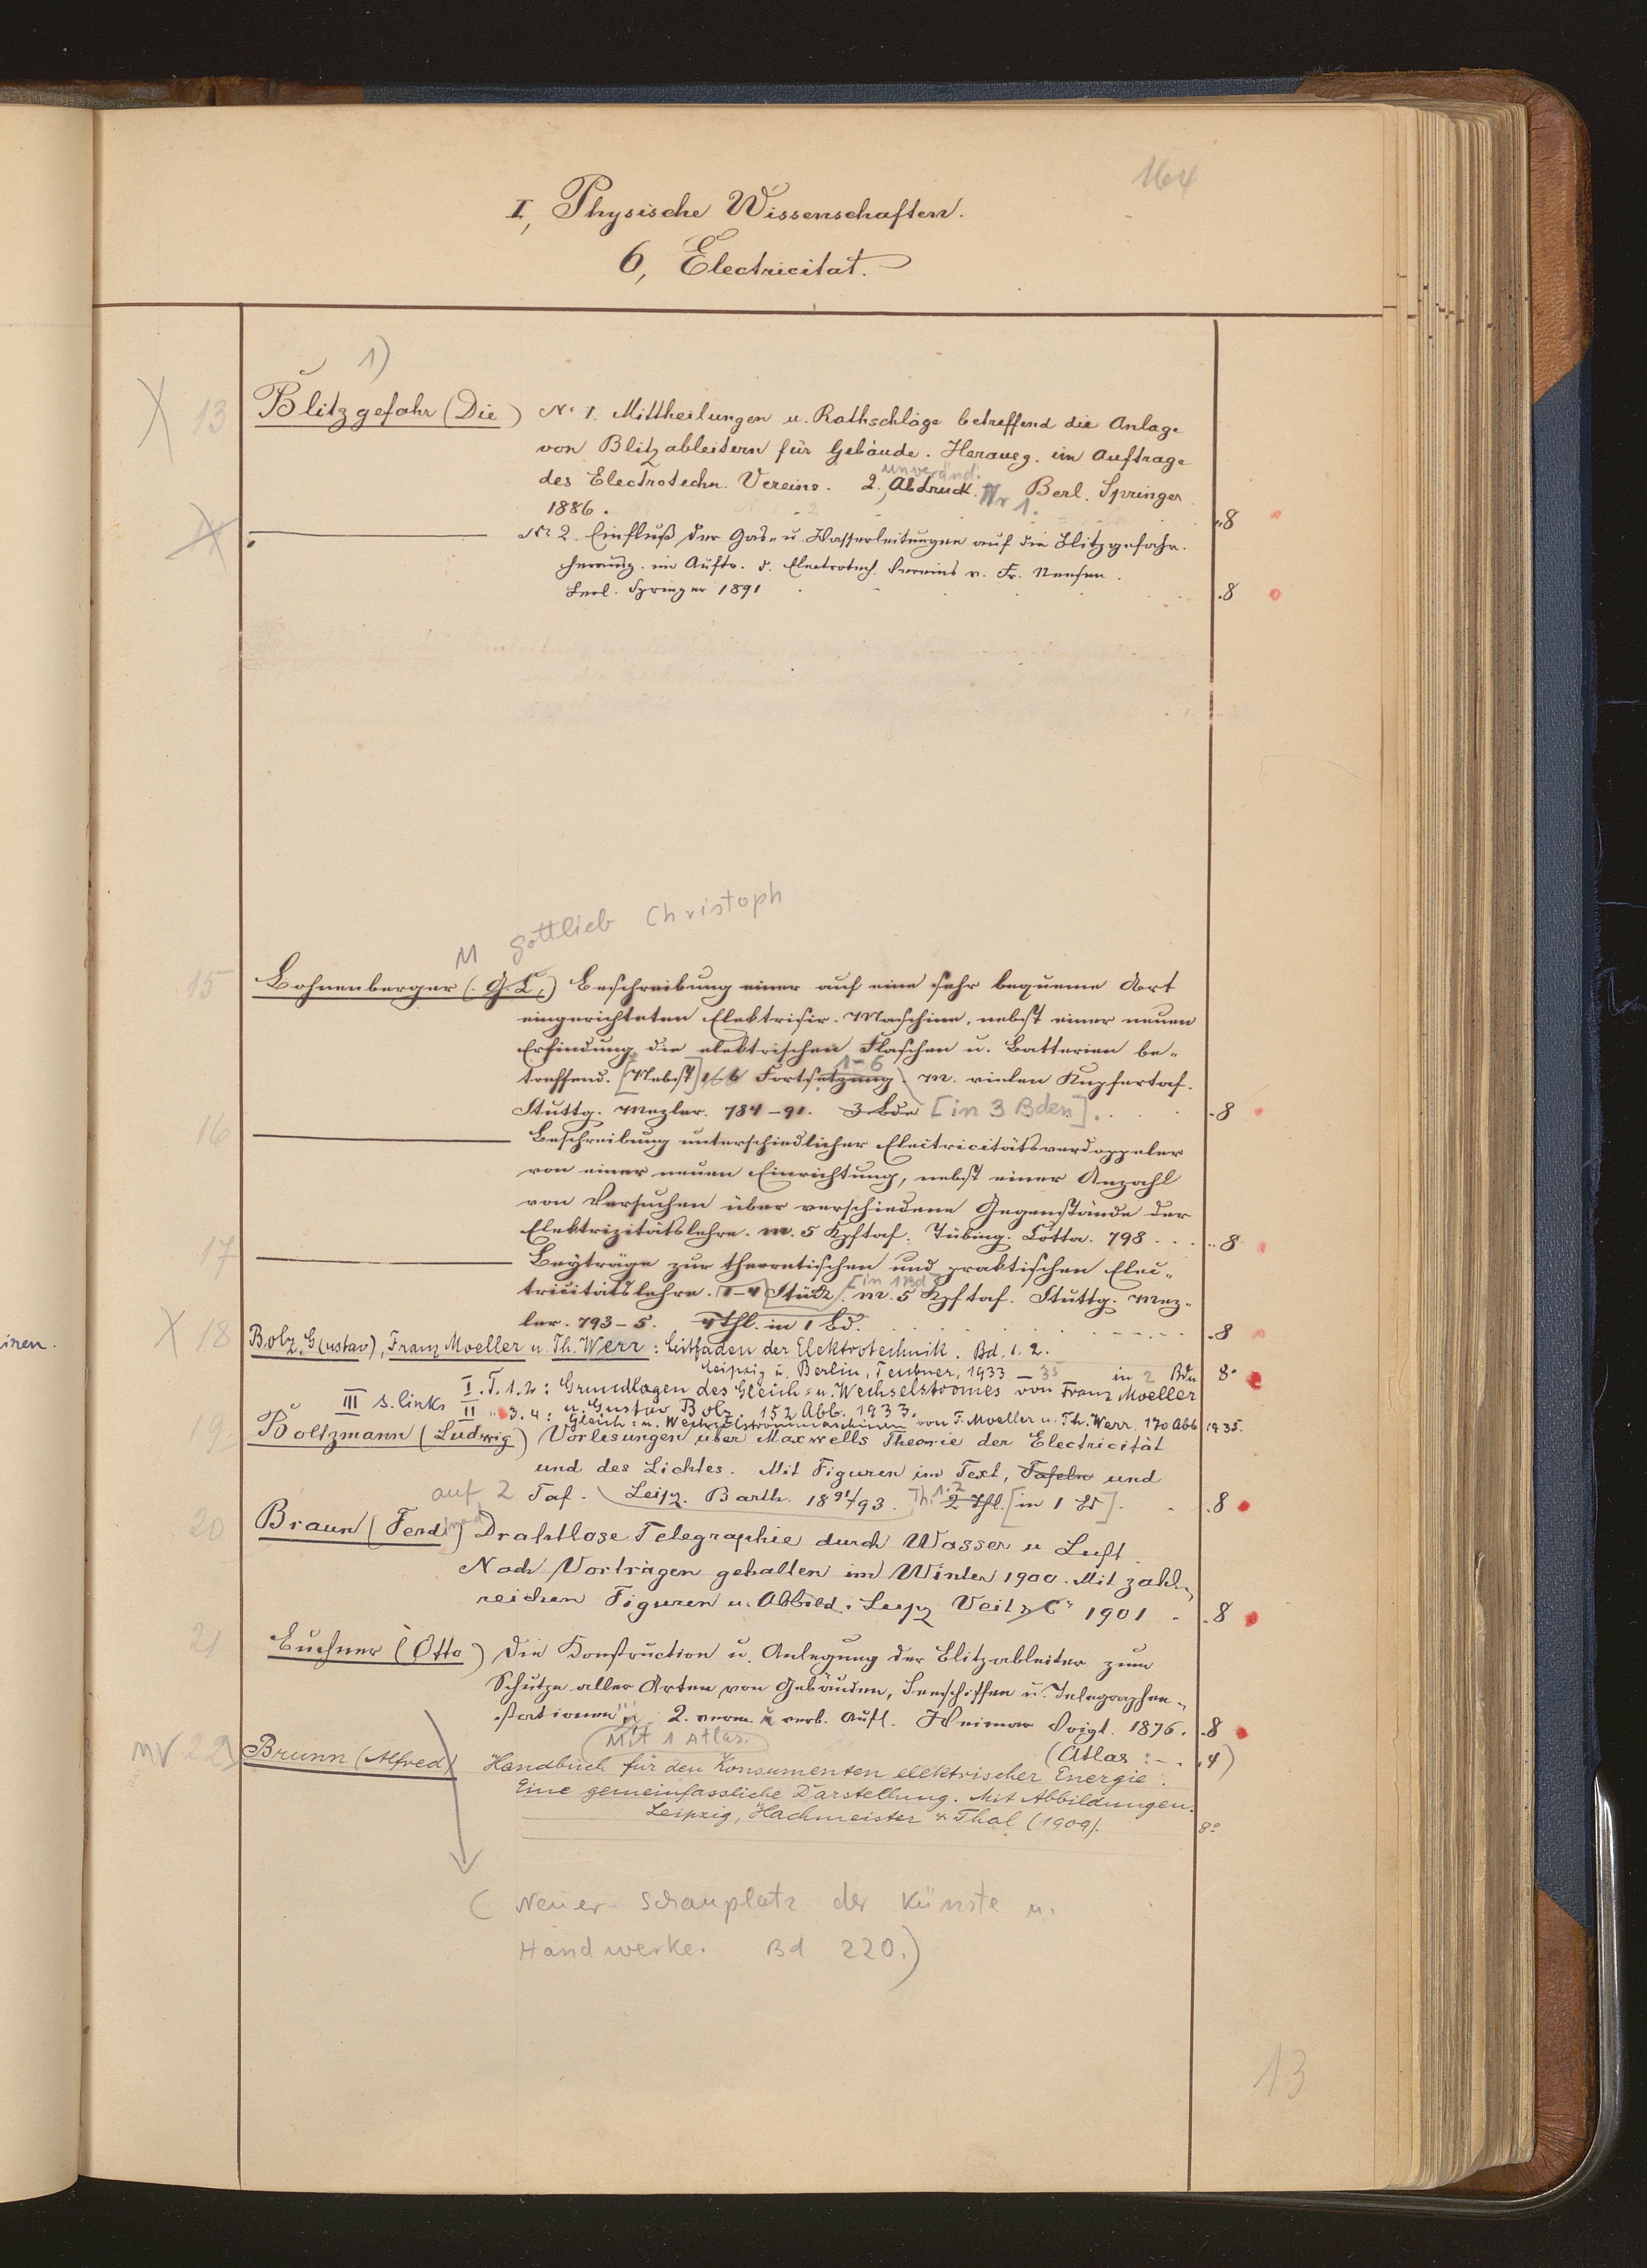 164
I, Physische Wissenschaften.
6, Electricitat.
1)
13 Blitzgefahr (Die) No 1. Mittheilungen u. Rathschläge betreffend die Anlage
von Blitzableitern für Gebäude. Herausg. im Auftrage
unveränd.
des Electrotechn. Vereins. 2. Abdruck. Nr 1. Berl. Springer.
1886. 8
No 2. Einfluß der Gas- u. Wasserleitungen auf die Blitzgefahr.
Herausg. im Auftr. d. Electrotech. Vereins v. Fr. Neesen.
Berl. Springer 1891 8
M Gottlieb Christoph
15 Bohnenberger (G. C.) Beschreibung einer auf eine sehr bequeme Art
eingerichteten Elektrisir-Maschine, nebst einer neuen
Erfindung die elektrischen Flaschen u. Batterien be-
1-6
treffend. [Nebst] 1-6 Fortsetzung. m. vielen Kupfertaf.
Stuttg. Mezler. 784-91. 3 Bde [in 3 Bden]. 8
16 Beschreibung unterschiedlicher Electricitätsverdoppeler
von einer neuen Einrichtung, nebst einer Anzahl
von Versuchen über verschiedene Gegenstände der
Elektrizitätslehre. m. 5 Kpftaf. Tübing. Cotta. 798 8
17 Beyträge zur theoretischen und praktischen Elec-
[in 1 Bd]
tricitätslehre. 1-4 Stück. m. 5 Kpftaf. Stuttg. Mez-
ler. 793-5. 4 Thl. in 1 Bd. 8
inen.
18 Bolz, G(ustav), Franz Moeller u. Th. Werr: Leitfaden der Elektrotechnik. Bd. 1. 2.
Leipzig u. Berlin, Teubner, 1933-35 in 2 Bdn 8°
I. T. 1. 2: Grundlagen des Gleich- u. Wechselstromes von Franz Moeller
u. Gustav Bolz. 152 Abb. 1933.
III s. links II " 3. 4: Gleich- u. Wechselstrommaschinen von F. Moeller u. Th. Werr. 170 Abb 1935.
19 Boltzmann (Ludwig) Vorlesungen über Maxwells Theorie der Electricität
und des Lichtes. Mit Figuren im Text, Tafeln und
auf 2 Taf. Leipz. Barth. 1891/93. Th. 1. 2 2 Thl. [in 1 Bd]. 8
20 Braun (Ferdinand) Drahtlose Telegraphie durch Wasser u Luft.
Nach Vorträgen gehalten im Winter 1900. Mit zahl-
reichen Figuren u. Abbild. Leipz Veit & Co 1901 8
21 Buchner (Otto) Die Konstruction u. Anlegung der Blitzableiter zum
Schutze aller Arten von Gebäuden, Seeschiffen u. Telegraphen-
stationen. 2. verm. u verb. Aufl. Weimar Voigt. 1876. 8
Mit 1 Atlas.
(Atlas: 4)
NV 22 Brunn (Alfred) Handbuch für den Konsumenten elektrischer Energie.
Eine gemeinfassliche Darstellung. Mit Abbildungen.
Leipzig, Hachmeister & Thal (1909). 8°
(Neuer Schauplatz der Künste u.
Handwerke. Bd 220.)
13